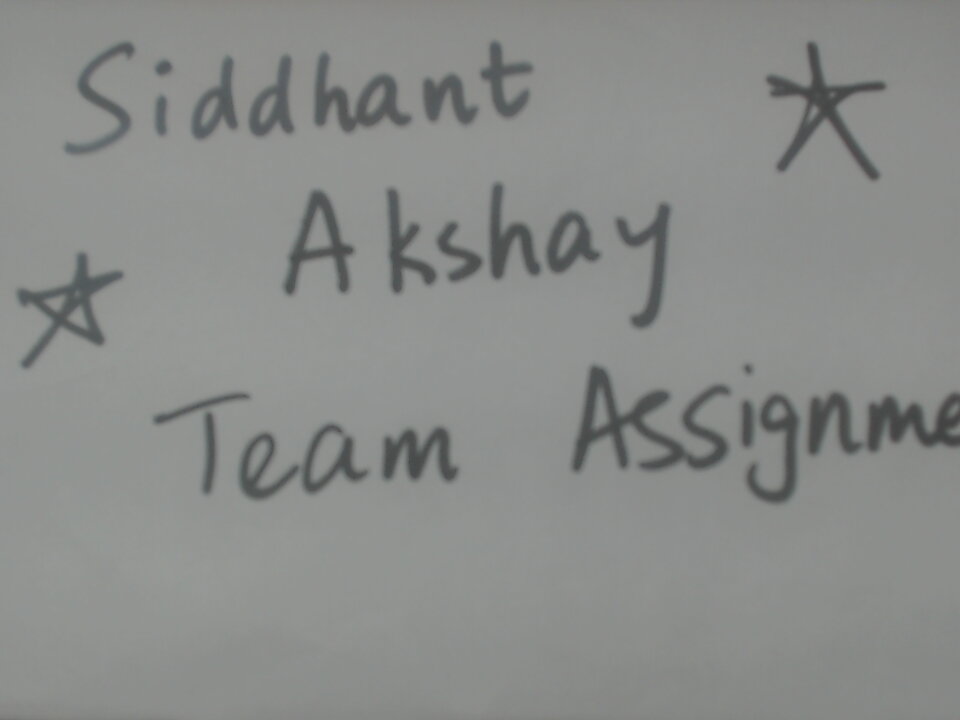 Siddhant
Akshay
Team Assignme